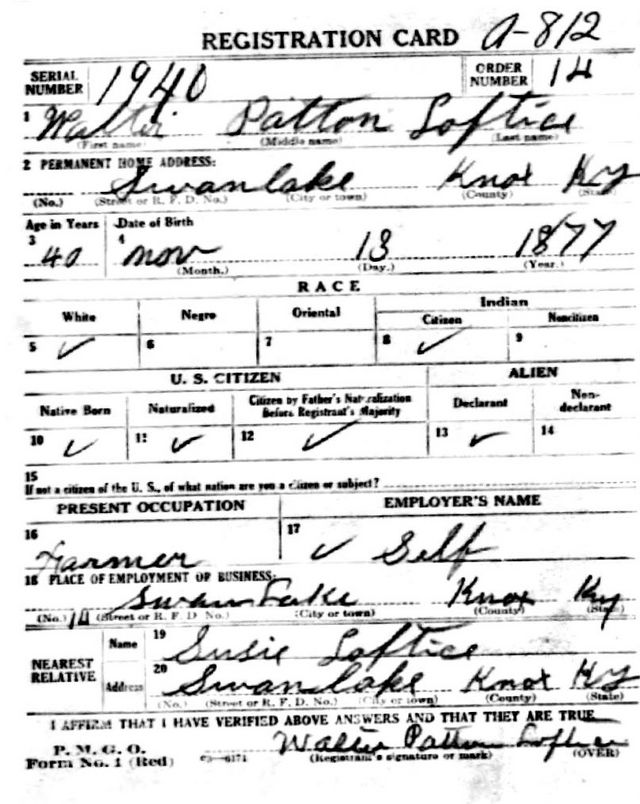 REGISTRATION CARD A-812
SERIAL NUMBER 1940 ORDER NUMBER 14
1 Walter Patton Loftice
(First name) (Middle name) (Last name)
2 PERMANENT HOME ADDRESS:
Swanlake Knox Ky
(No.) (Street or R. F. D. No.) (City or town) (County) (State)
Age in Years Date of Birth
3 40 4 Nov 13 1877
(Month.) (Day.) (Year.)
RACE
White Negro Oriental Indian
Citizen Noncitizen
5 ✓ 6 7 8 ✓ 9
U. S. CITIZEN ALIEN
Native Born Naturalized Citizen by Father's Naturalization Before Registrant's Majority Declarant Non-declarant
10 ✓ 11 ✓ 12 ✓ 13 ✓ 14
15
If not a citizen of the U. S., of what nation are you a citizen or subject?
PRESENT OCCUPATION EMPLOYER'S NAME
16 Farmer 17 ✓ Self
18 PLACE OF EMPLOYMENT OR BUSINESS:
Swan Lake Knox Ky
(No.) 14 (Street or R. F. D. No.) (City or town) (County) (State)
NEAREST RELATIVE Name 19 Susie Loftice
Address 20 Swanlake Knox Ky
(No.) (Street or R. F. D. No.) (City or town) (County) (State)
I AFFIRM THAT I HAVE VERIFIED ABOVE ANSWERS AND THAT THEY ARE TRUE
P. M. G. O. Walter Patton Loftice
Form No. 1 (Red) (Registrant's signature or mark) (OVER)